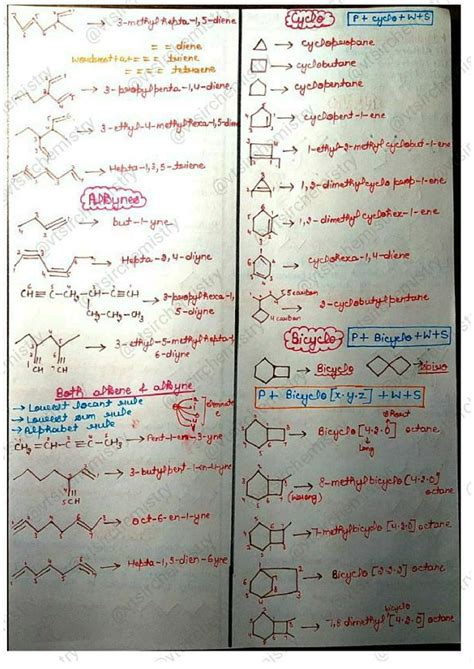 3-methylhepta-1,5-diene
= = diene
= = = triene
= = = = tetraene
3-propylpenta-1,4-diene
3-ethyl-4-methylhexa-1,5-diene
Hepta-1,3,5-triene
Alkynes
but-1-yne
Hepta-2,4-diyne
CH≡C-CH-CH-C≡CH
CH₂-CH₂-CH₃
3-propylhexa-1,
5-diyne
3-ethyl-5-methylhepta-1,
6-diyne
CH
CH
Both alkene & alkyne
→ Lowest locant rule
→ Lowest sum rule
→ Alphabet rule
CH₂=CH-C≡C-CH₃
Pent-1-en-3-yne
3-butylpent-1-en-4-yne
CH
oct-6-en-1-yne
Hepta-1,3-dien-6yne
Cyclo
P + cyclo + W + S
cyclopropane
cyclobutane
cyclopentane
cyclopent-1-ene
1-ethyl-2-methylcyclobut-1-ene
1,2-dimethylcycloprop-1-ene
1,2-dimethylcyclohex-1-ene
cyclohexa-1,4-diene
5 carbon
2-cyclobutylpentane
4 carbon
Bicyclo
P + Bicyclo + W + S
Bicyclo
Spiro
P + Bicyclo [x.y.z] + W + S
Bicyclo [4.2.0] octane
Long
8-methylbicyclo [4.2.0]
octane
(wrong)
7-methylbicyclo [4.2.0] octane
Bicyclo [2.2.2] octane
bicyclo
7,8 dimethyl [4.2.0] octane
@vtsirchemistry